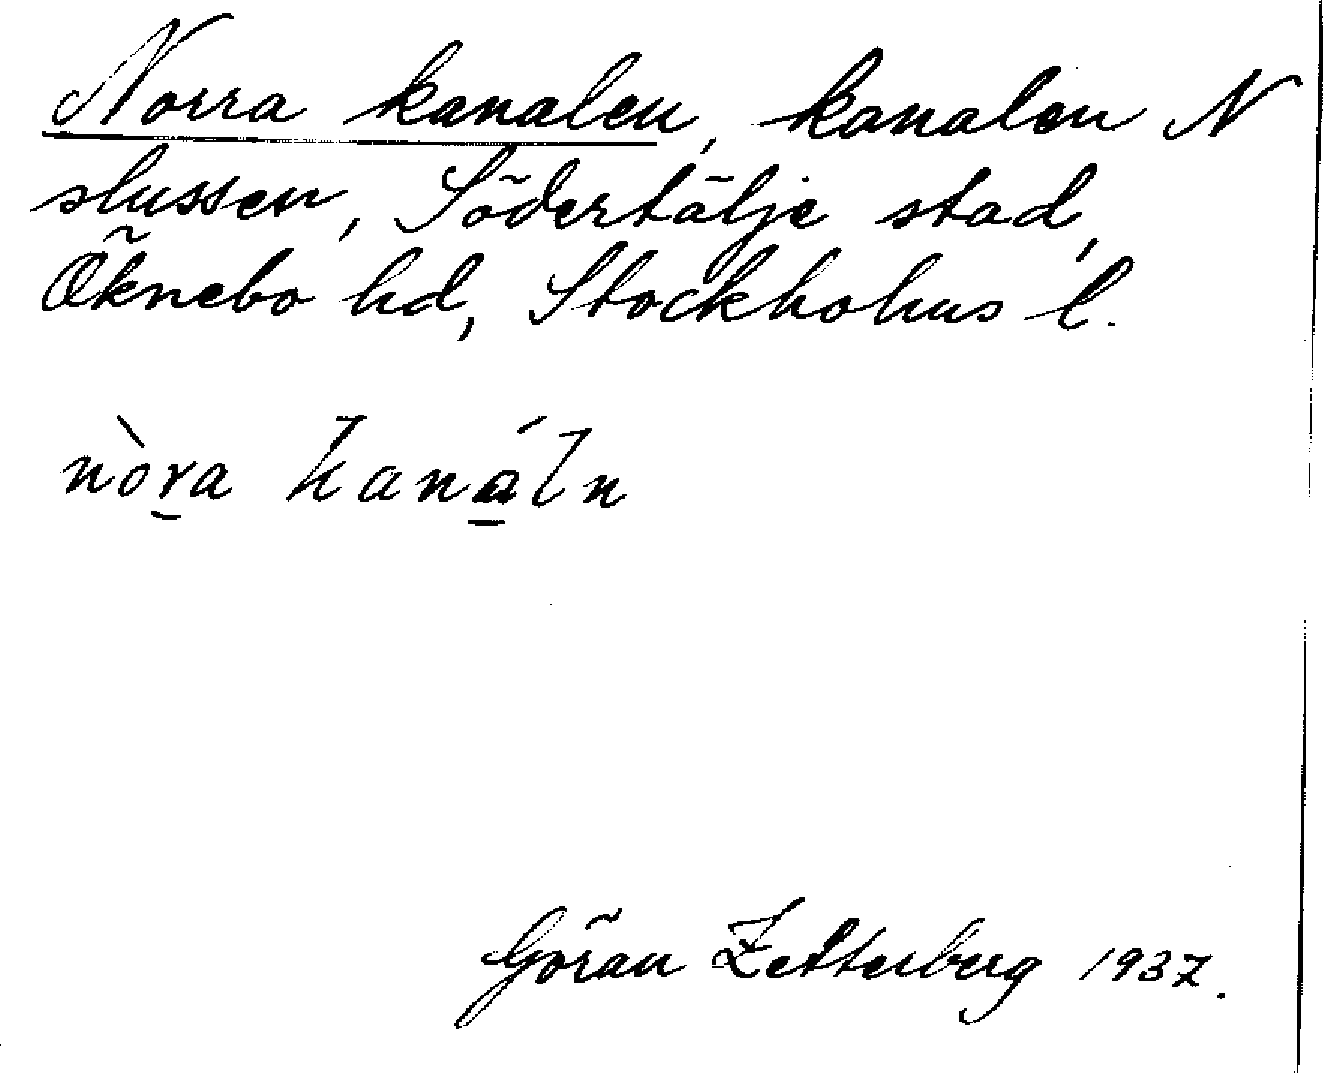 Norra kanalen, kanalen N
slussen, Södertälje stad,
Öknebo hd, Stockholms l.
nòr̲a kaná̲ln
Göran Zetterberg 1937.